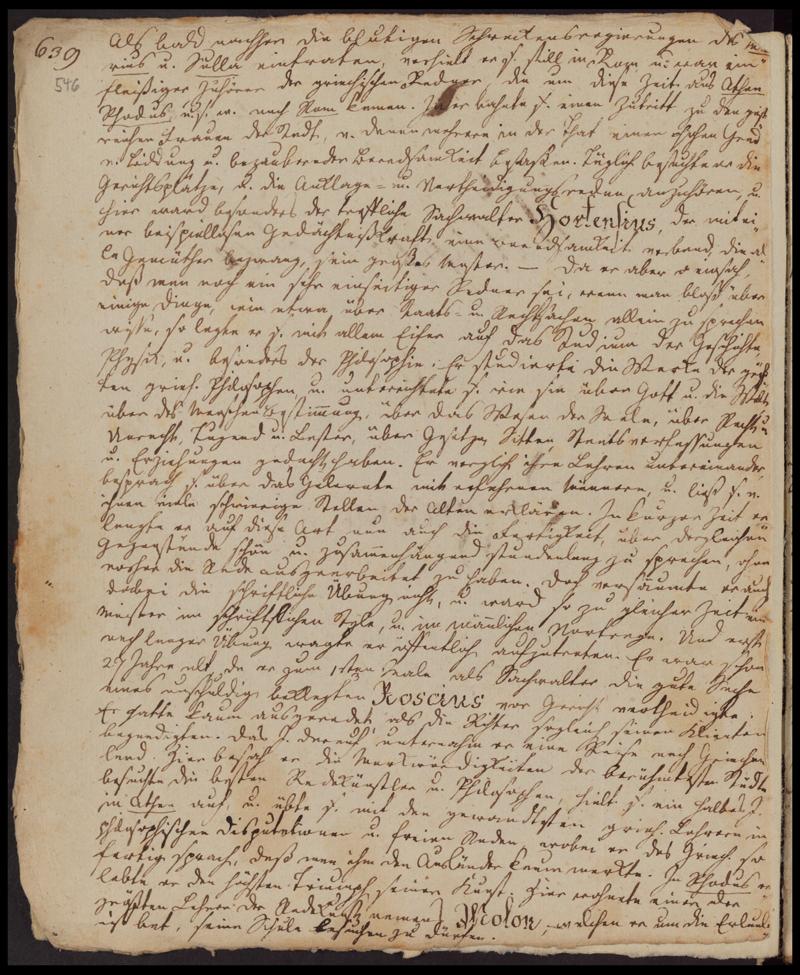 639
546
Als bald nachher die blutigen Schreckensregierungen des Ma-
rius u. Sulla eintraten, verhielt er s. still in Rom u. war ein
fleißiger Zuhörer der griechischen Redner, die um diese Zeit aus Athen
Rhodus, u. s. w. nach Rom kamen. er bahnte s. einen Zutritt zu den geist
reichen Frauen der Stadt, v. denen mehrere in der That einen hohen Grad
v. Bildung u. bezaubernder Beredsamkeit besaßen. Täglich besuchte er die
Gerichtsplätze, u. die Anklage- u. Vertheidigungsreden anzuhören, u.
hier ward besonders der treffliche Sachwalter Hortensius, der mit ei-
ner beispiellosen Gedächtnißkraft eine Beredsamkeit verband, die al
le Gemüther bezwang, sein großes Muster. — Da er aber einsah,
daß man noch ein sehr einseitiger Redner sei, wenn man bloß über
einige Dinge, wie etwa über Staats- u. Rechtssachen allein zu sprechen
wisse, so legte er s. mit allem Eifer auf das Studium der Geschichte,
Physik, u. besonders der Philosophie. Er studierte die Werke der größ
ten griech. Philosophen, u. unterrichtete s. wie sie über Gott u. die Welt,
über des Menschen Bestimmung, über das Wesen der Seele, über Recht u.
Unrecht, Tugend u. Laster, über Gesetze, Sitten, Staatsverfassungen
u. Erziehungen gedacht haben. Er verglich ihre Lehren untereinander,
besprach s. über das Gelernte mit erfahrenen Männern, u. ließ s. v.
ihnen viele schwierige Stellen der Alten erklären. In kurzer Zeit er
langte er auf diese Art nun auch die Fertigkeit, über dergleichen
Gegenstände schön u. zusammenhängend stundenlang zu sprechen, ohne
vorher die Rede ausgearbeitet zu haben. Doch versäumte er auch
dabei die schriftliche Übung nicht, u. ward so zu gleicher Zeit ein
Meister im schriftlichen Style, u. im mündlichen Vortrage. Und erst
nach langer Übung wagte er öffentlich aufzutreten. Er war schon
27 Jahre alt, da er zum 1sten Male als Sachwalter die gute Sache
eines unschuldig beklagten Roscius vor Gericht vertheidigte.
Er hatte kaum ausgeredet als die Richter sogleich seinen Klienten
begnadigten. Das J. darauf unternahm er eine Reise nach Griechen
land. Hier besah er die Merkwürdigkeiten der berühmtesten Städte
besuchte die besten Redekünstler u. Philosophen, hielt s. ein halbes J.
in Athen auf, u. übte s. mit den gewandtesten griech. Lehrern in
philosophischen Disputationen u. freien Reden, wobei er das Griech. so
fertig sprach, daß man ihm den Ausländer kaum merkte. In Rhodus er
lebte er den höchsten Triumph seiner Kunst. Hier wohnte einer der
größten Lehrer der Redekunst namens Molon, welchen er um die Erlaub
niß bat, seine Schule besuchen zu dürfen.